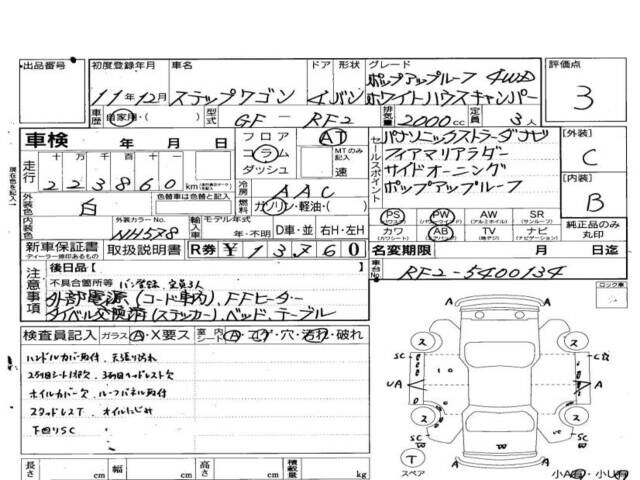 出品番号 初度登録年月 車名 ドア 形状 グレード 評価点
11年12月 ステップワゴン 4 バン ポップアップルーフ 4WD
ホワイトハウスキャンパー
3
車歴 自家用・( ) 輸入車 型式 GF-RF2 排気量 2000cc 定員 3人
車検 年 月 日
走行 十 万 千 百 十
223860 km
フロア コラム ダッシュ
AT
MTのみ記入 速
セールスポイント
パナソニックストラーダナビ
フィアマリアラダー
サイドオーニング
ポップアップルーフ
【外装】
C
【内装】
B
冷房 AAC
燃料 ガソリン・軽油・( )
外装色 白
内装色
色替車は色替と記入
外装カラーNo. NH578
モデル年式 年・不明
D車・並 右H・左H
PS PW AW SR
カワ AB TV ナビ
純正品のみ丸印
新車保証書 取扱説明書 R券 ¥13,760
名変期限 月 日迄
車台No. RF2-5400134
注意事項
後日品【 】
不具合箇所等 バン登録、定員3人
外部電源(コード車内)、FFヒーター
タイベル交換済(ステッカー)、ベッド、テーブル
ロック車
検査員記入 ガラス A・X要ス 室内シート A・コゲ・穴・汚れ・破れ
ハンドルカバー取付、天張り汚れ
2列目シート1部欠、3列目ヘッドレスト欠
ホイルカバー欠、ルーフパネル取付
スタッドレスT、オイルにじみ
下回りSC
A
ス ス
SC
UA A
ス ス
SC SC
W W
A
T
スペア
長さ cm 幅 cm 高さ cm 積載量 kg
小A有・小U有